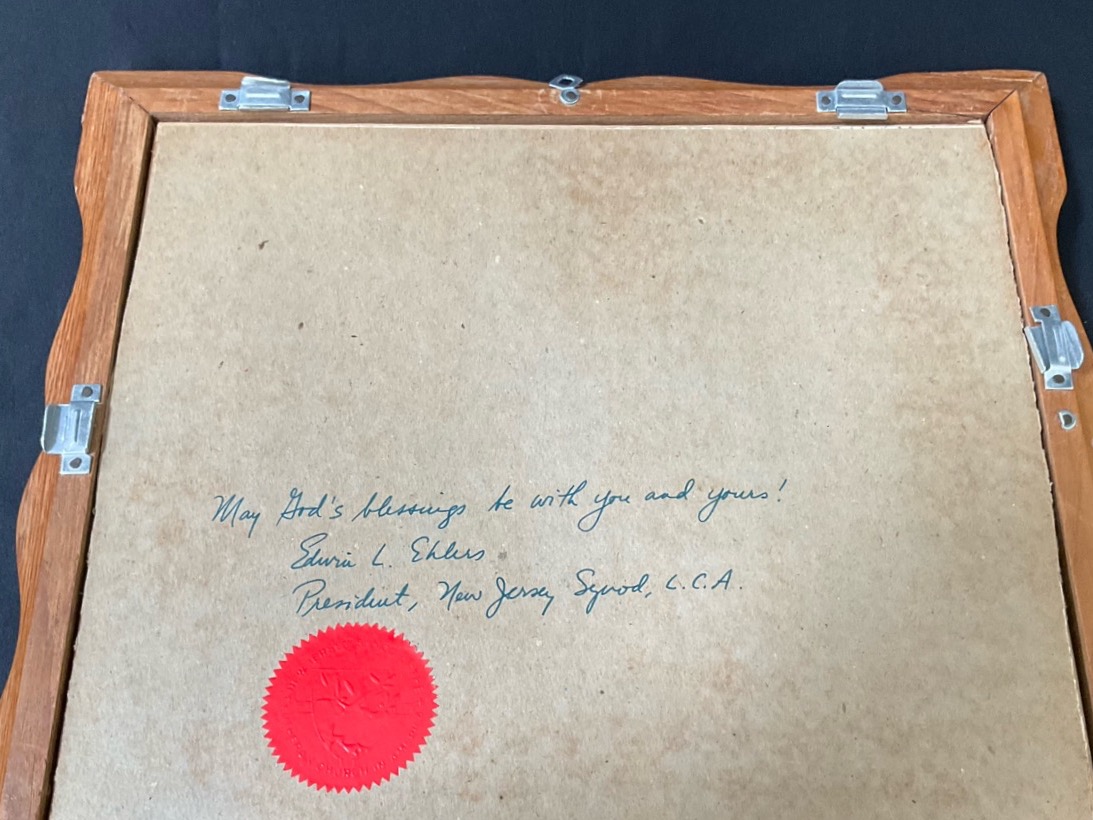 May God's blessings be with you and yours!
Edwin L. Ehlers
President, New Jersey Synod, L.C.A.
CHURCH IN